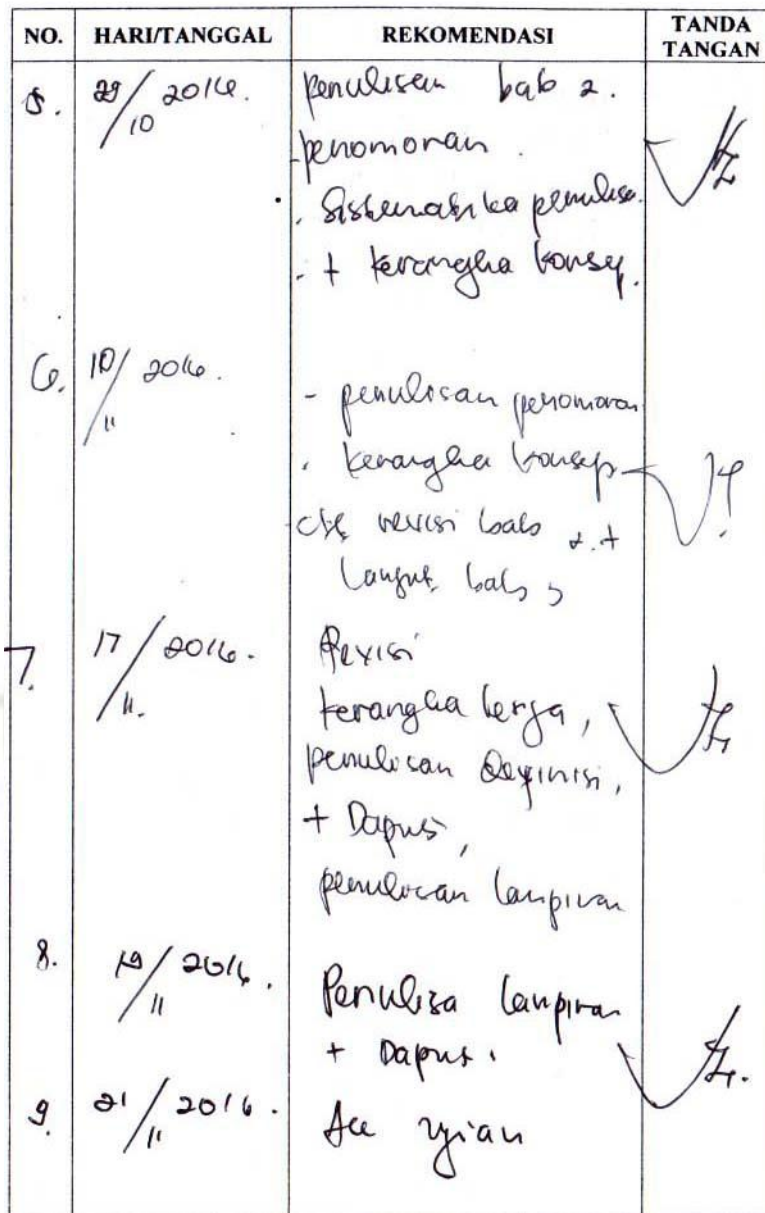 NO. HARI/TANGGAL REKOMENDASI TANDA TANGAN
5. 29/10 2016. Penulisan bab 2.
- penomoran.
. Sistematika penulisa.
- + kerangka konsep.
6. 10/11 2016. - penulisan penomoran
. kerangka konsep
revisi bab 2. +
Lanjut bab 3
7. 17/11. 2016. Revisi
kerangka kerja,
penulisan Definisi,
+ Dapus,
penulisan lampiran
8. 19/11 2016. Penulisa lampiran
+ Dapus.
9. 21/11 2016. Acc ujian